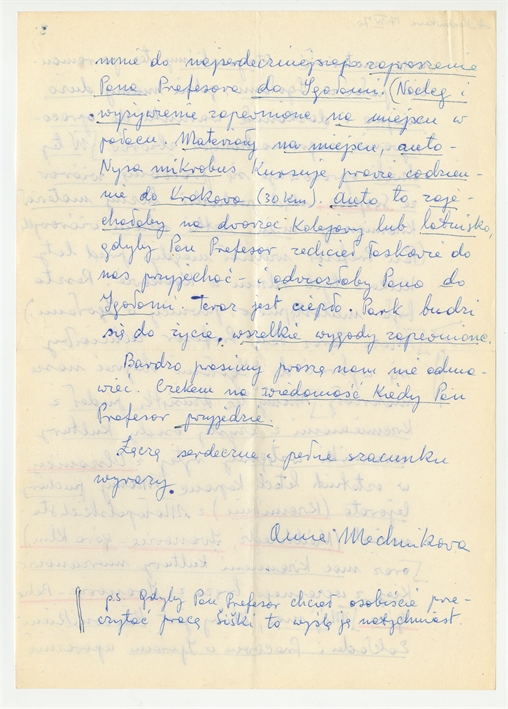 mnie do najserdeczniejszego zaproszenia
Pana Profesora do Igołomi. (Nocleg i
wyżywienie zapewnione na miejscu w
pałacu. Materiały na miejscu, auto-
Nysa mikrobus kursuje prawie codzien-
nie do Krakowa (30 km). Auto to zaje-
chałoby na dworzec kolejowy lub lotnisko,
gdyby Pan Profesor zechciał łaskawie do
nas przyjechać - i odwiozłoby Pana do
Igołomi. Teraz jest ciepło. Park budzi
się do życia, wszelkie wygody zapewnione.
Bardzo prosimy proszę nam nie odma-
wiać. Czekam na wiadomość kiedy Pan
Profesor przyjedzie.
Łączę serdeczne i pełne szacunku
wyrazy.
Anna
ps. Gdyby Pan Profesor chciał osobiście prze-
czytać pracę Šiški to wyślę ją natychmiast.